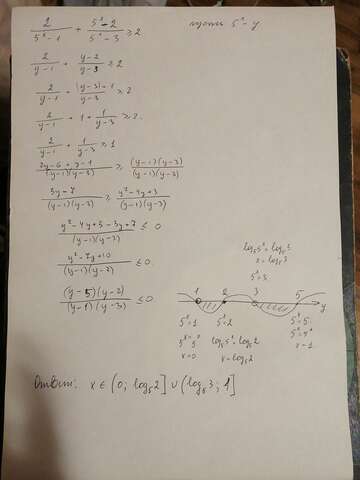 2/(5^x-1) + (5^x-2)/(5^x-3) ≥ 2 пусть 5^x = y
2/(y-1) + (y-2)/(y-3) ≥ 2
2/(y-1) + ((y-3)+1)/(y-3) ≥ 2
2/(y-1) + 1 + 1/(y-3) ≥ 2
2/(y-1) + 1/(y-3) ≥ 1
(2y-6+y-1)/((y-1)(y-3)) ≥ ((y-1)(y-3))/((y-1)(y-3))
(3y-7)/((y-1)(y-3)) ≥ (y²-4y+3)/((y-1)(y-3))
(y²-4y+3-3y+7)/((y-1)(y-3)) ≤ 0
(y²-7y+10)/((y-1)(y-3)) ≤ 0
(y-5)(y-2)/((y-1)(y-3)) ≤ 0
log₅5^x = log₅3
x = log₅3
5^x = 3
1 2 3 5 y
5^x = 1 5^x = 2 5^x = 5
5^x = 5^0 log₅5^x = log₅2 5^x = 5^1
x = 0 x = log₅2 x = 1
Ответ: x ∈ (0; log₅2] ∪ (log₅3; 1]